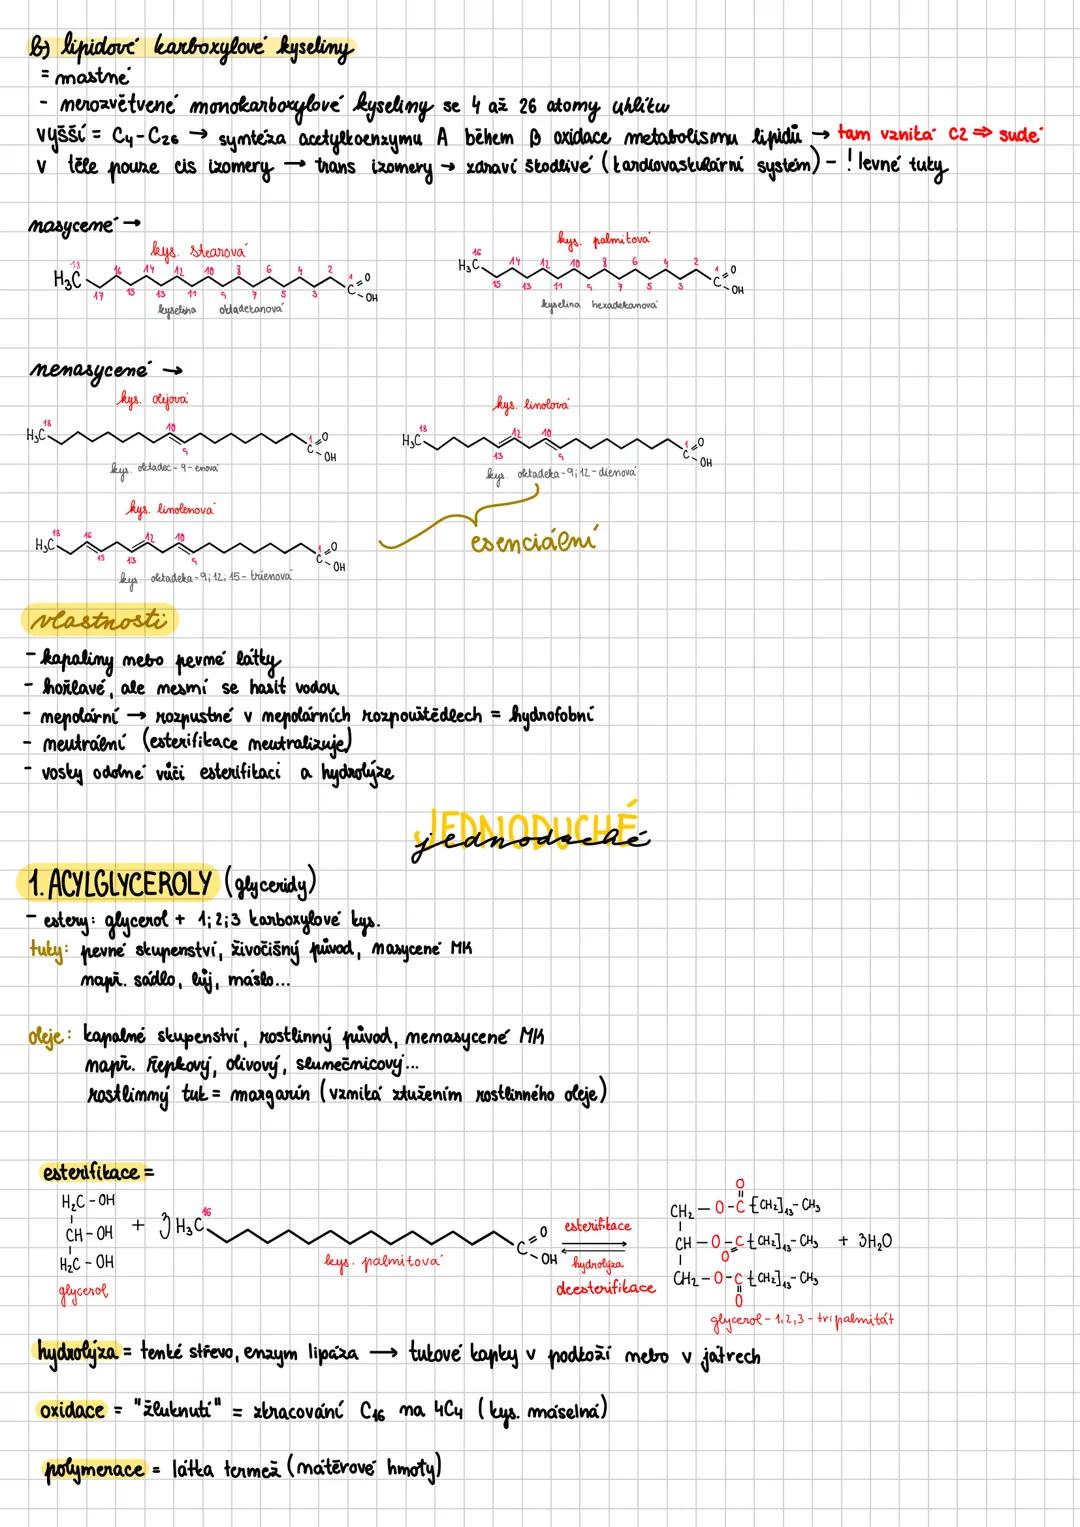 b) lipidové karboxylové kyseliny
= mastné
- nerozvětvené monokarboxylové kyseliny se 4 až 26 atomy uhlíku
vyšší = C4-C26 → syntéza acetylkoenzymu A během β oxidace metabolismu lipidů → tam vzniká C2 ⇒ sudé
v těle pouze cis izomery → trans izomery → zdraví škodlivé (kardiovaskulární systém) - ! levné tuky
nasycené →
kys. stearová
18 16 14 12 10 8 6 4 2 1
H3C C O OH
17 15 13 11 9 7 5 3
kyselina oktadekanová
kys. palmitová
16 14 12 10 8 6 4 2 1
H3C C O OH
15 13 11 9 7 5 3
kyselina hexadekanová
nenasycené →
kys. olejová
18 10 1
H3C C O OH
9
kys. oktadec-9-enová
kys. linolová
18 12 10 1
H3C C O OH
13 9
kys. oktadeka-9;12-dienová
kys. linolenová
18 16 12 10 1
H3C C O OH
15 13 9
kys. oktadeka-9;12;15-trienová
esenciální
vlastnosti
- kapaliny nebo pevné látky
- hořlavé, ale nesmí se hasit vodou
- nepolární → rozpustné v nepolárních rozpouštědlech = hydrofobní
- neutrální (esterifikace neutralizuje)
- vosky odolné vůči esterifikaci a hydrolýze
JEDNODUCHÉ
jednoduché
1. ACYLGLYCEROLY (glyceridy)
- estery: glycerol + 1;2;3 karboxylové kys.
tuky: pevné skupenství, živočišný původ, nasycené MK
např. sádlo, lůj, máslo...
oleje: kapalné skupenství, rostlinný původ, nenasycené MK
např. řepkový, olivový, slunečnicový...
rostlinný tuk = margarín (vzniká ztužením rostlinného oleje)
esterifikace =
H2C - OH
CH - OH
H2C - OH
glycerol
+ 3 H3C 16 C O OH
kys. palmitová
esterifikace
hydrolýza
deesterifikace
O
CH2 - O - C [CH2]13 - CH3
CH - O - C [CH2]13 - CH3 + 3H2O
O
CH2 - O - C [CH2]13 - CH3
O
glycerol-1,2,3-tripalmitát
hydrolýza = tenké střevo, enzym lipáza → tukové kapky v podkoží nebo v játrech
oxidace = "žluknutí" = zkracování C16 na 4C4 (kys. máselná)
polymerace = látka termež (nátěrové hmoty)